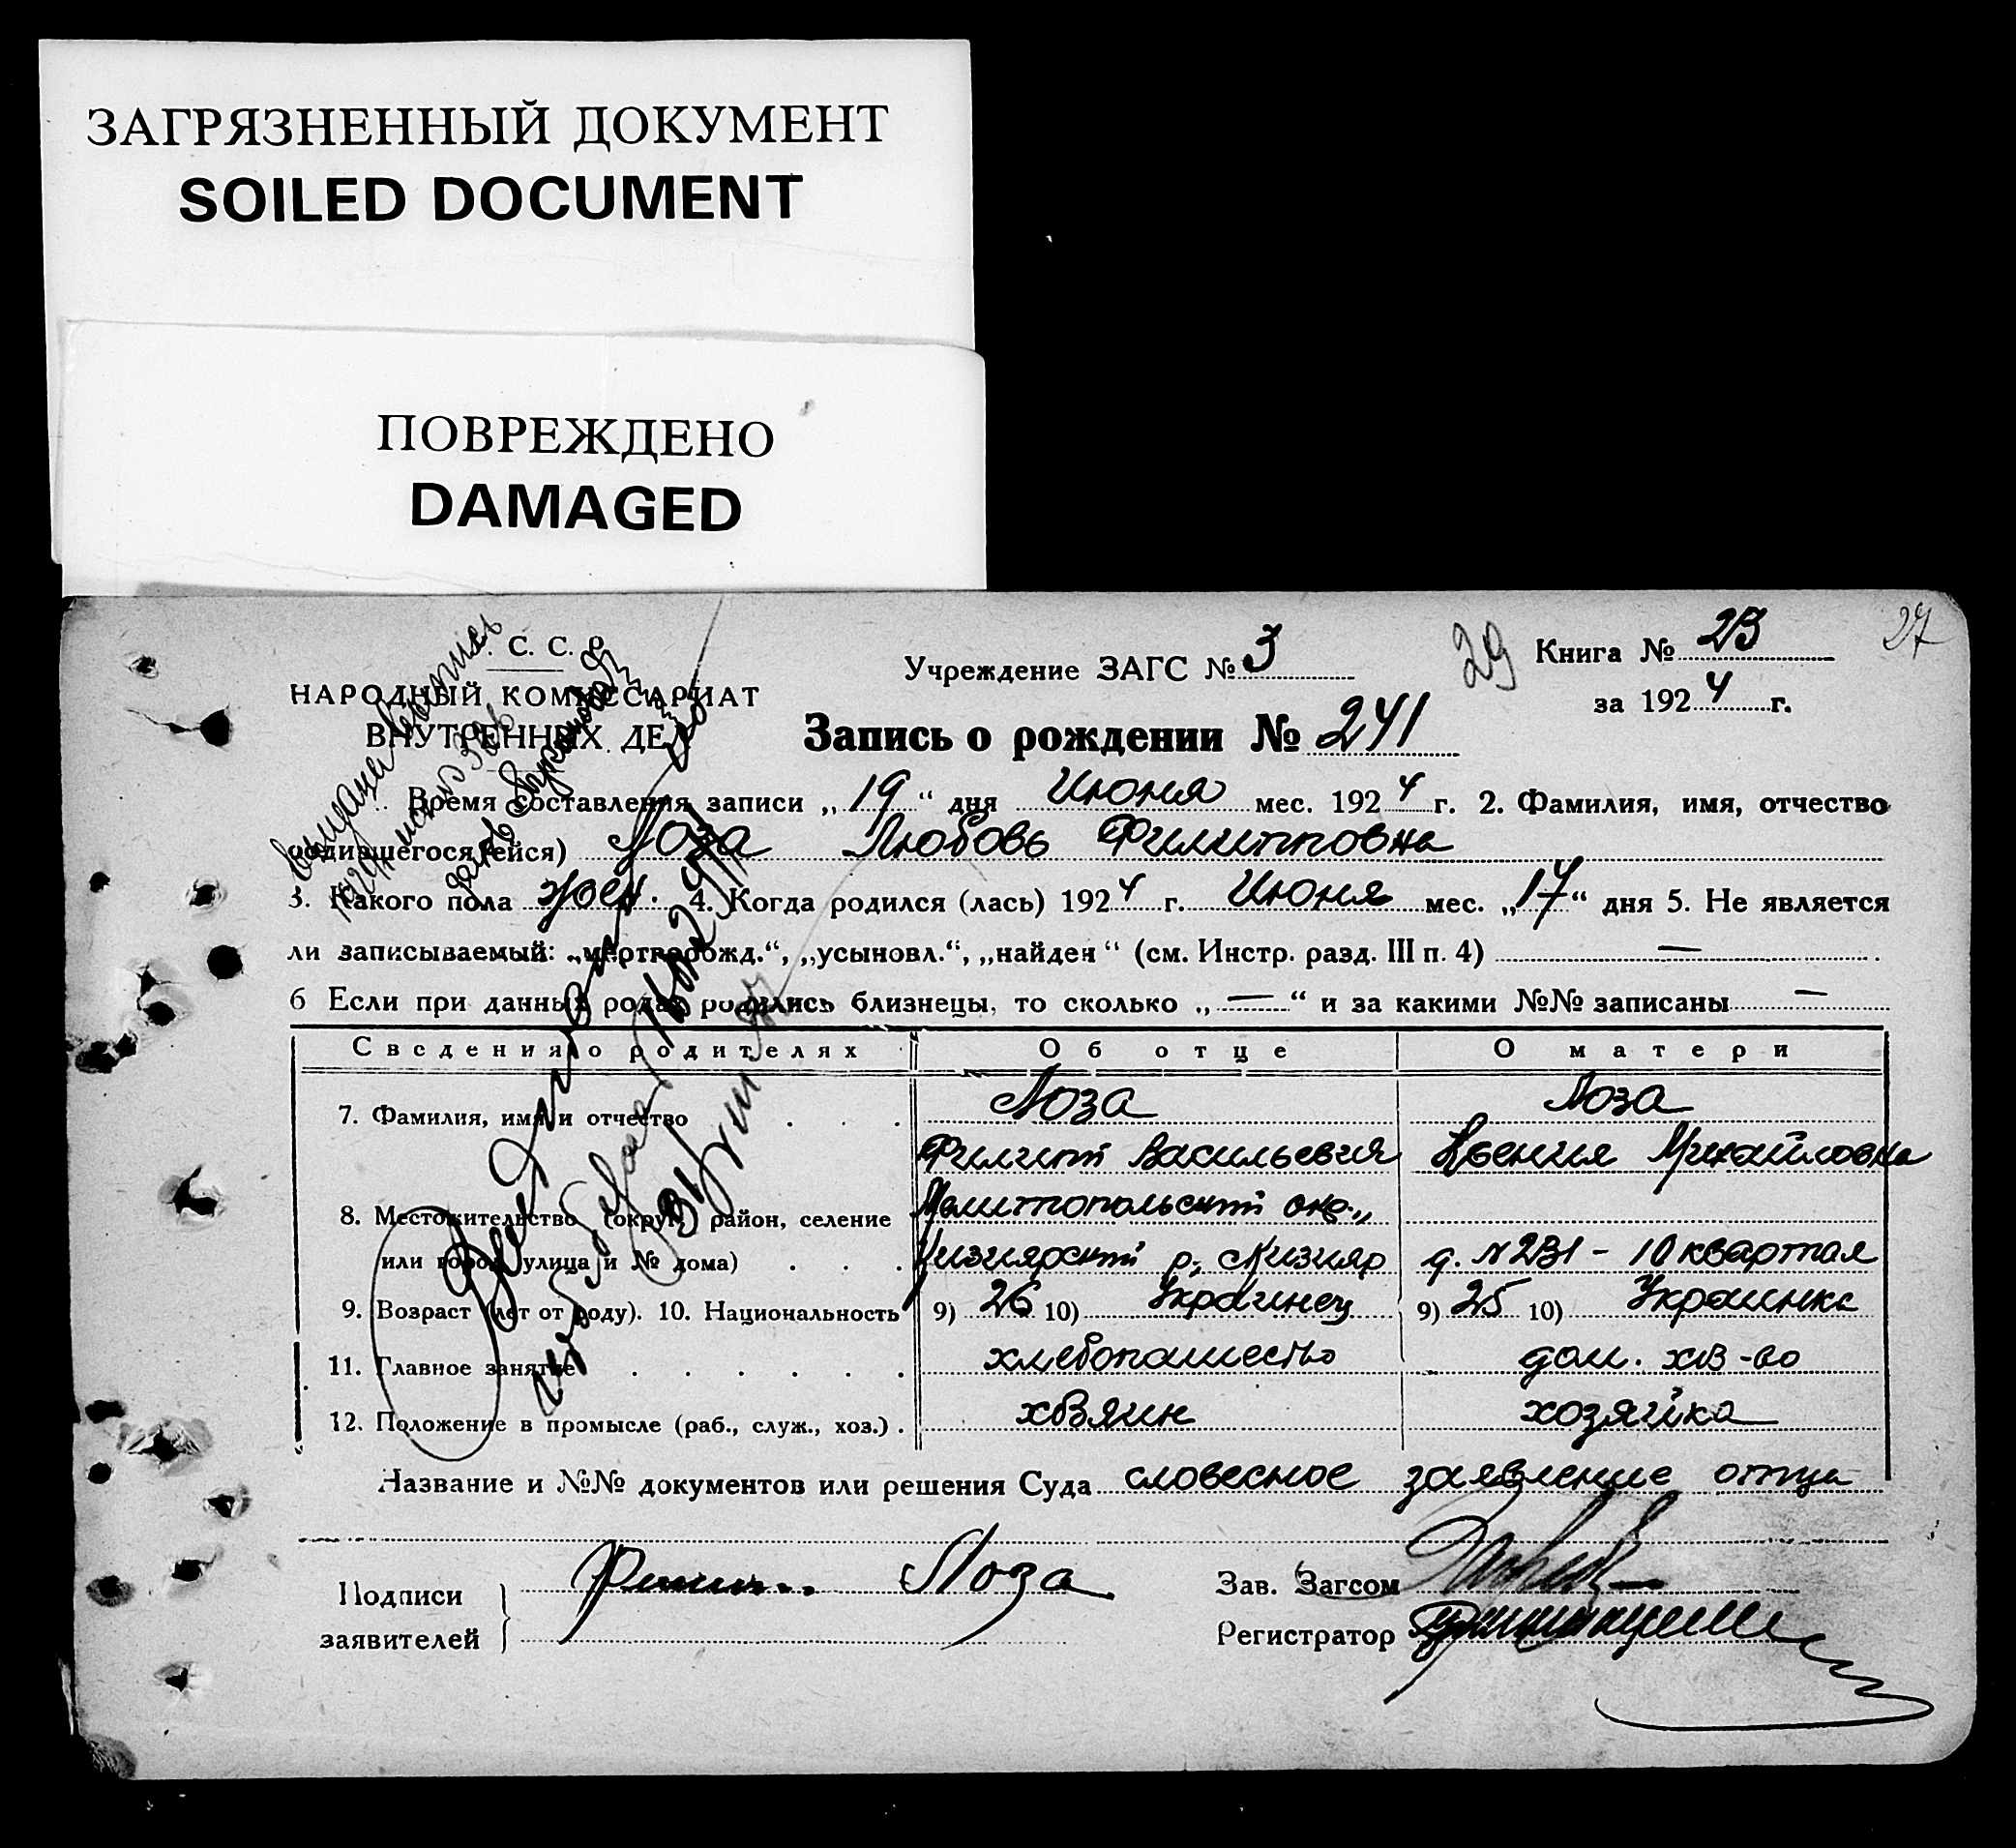 ЗАГРЯЗНЕННЫЙ ДОКУМЕНТ
SOILED DOCUMENT
ПОВРЕЖДЕНО
DAMAGED
С. С. Р.
НАРОДНЫЙ КОМИССАРИАТ
ВНУТРЕННИХ ДЕЛ
Учреждение ЗАГС № 3
29
Книга № 2В
27
за 1924 г.
Запись о рождении № 241
Время составления записи „19“ дня Июня мес. 1924 г. 2. Фамилия, имя, отчество
родившегося (ейся) Лоза Любовь Филипповна
3. Какого пола жен. 4. Когда родился (лась) 1924 г. Июня мес. „17“ дня 5. Не является
ли записываемый: „мертворожд.“, „усыновл.“, „найден“ (см. Инстр. разд. III п. 4) —
6 Если при данных родах родились близнецы, то сколько „—“ и за какими №№ записаны —
Сведения о родителях Об отце О матери
7. Фамилия, имя и отчество . . . Лоза Лоза
Филипп Васильевич Ксения Михайловна
8. Местожительство (округ, район, селение Мелитопольский окр.,
или город, улица и № дома) . . . Кизиярский р., с Кизияр д. № 231 - 10 квартал
9. Возраст (лет от роду). 10. Национальность 9) 26 10) Украинец 9) 25 10) Украинка
11. Главное занятие . . . . . . хлебопашество дом. хв-во
12. Положение в промысле (раб., служ., хоз.) . хозяин хозяйка
Название и №№ документов или решения Суда словесное заявление отца
Подписи
заявителей
Лоза
Зав. Загсом
Регистратор